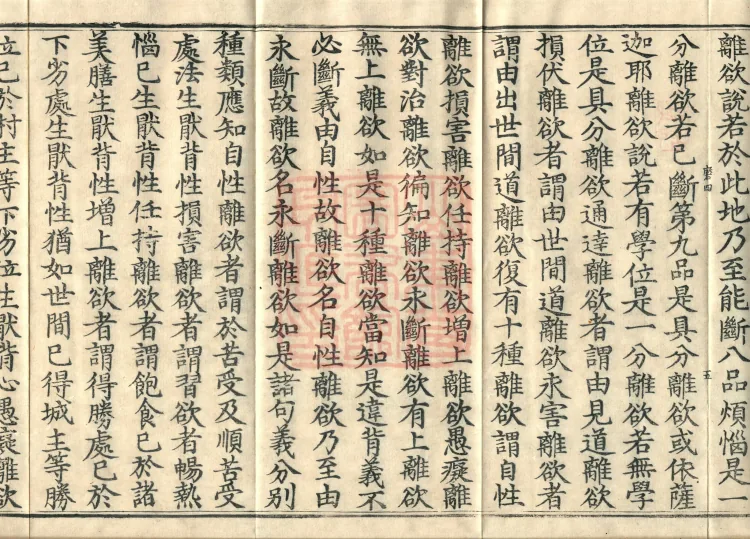 離欲說若於此地乃至能斷八品煩惱是一
分離欲若已斷第九品是具分離欲或依薩
磨四
五
迦耶離欲說若有學位是一分離欲若無學
位是具分離欲通達離欲者謂由見道離欲
損伏離欲者謂由世間道離欲永害離欲者
謂由出世間道離欲復有十種離欲謂自性
離欲損害離欲任持離欲增上離欲愚癡離
欲對治離欲徧知離欲永斷離欲有上離欲
無上離欲如是十種離欲當知是違背義不
必斷義由自性故離欲名自性離欲乃至由
永斷故離欲名永斷離欲如是諸句義分別
種類應知自性離欲者謂於苦受及順苦受
處法生猒背性損害離欲者謂習欲者暢熱
惱已生猒背性任持離欲者謂飽食已於諸
美膳生猒背性增上離欲者謂得勝處已於
下劣處生猒背性猶如世間已得城主等勝
位已於村主等下劣位生猒背心愚癡離欲